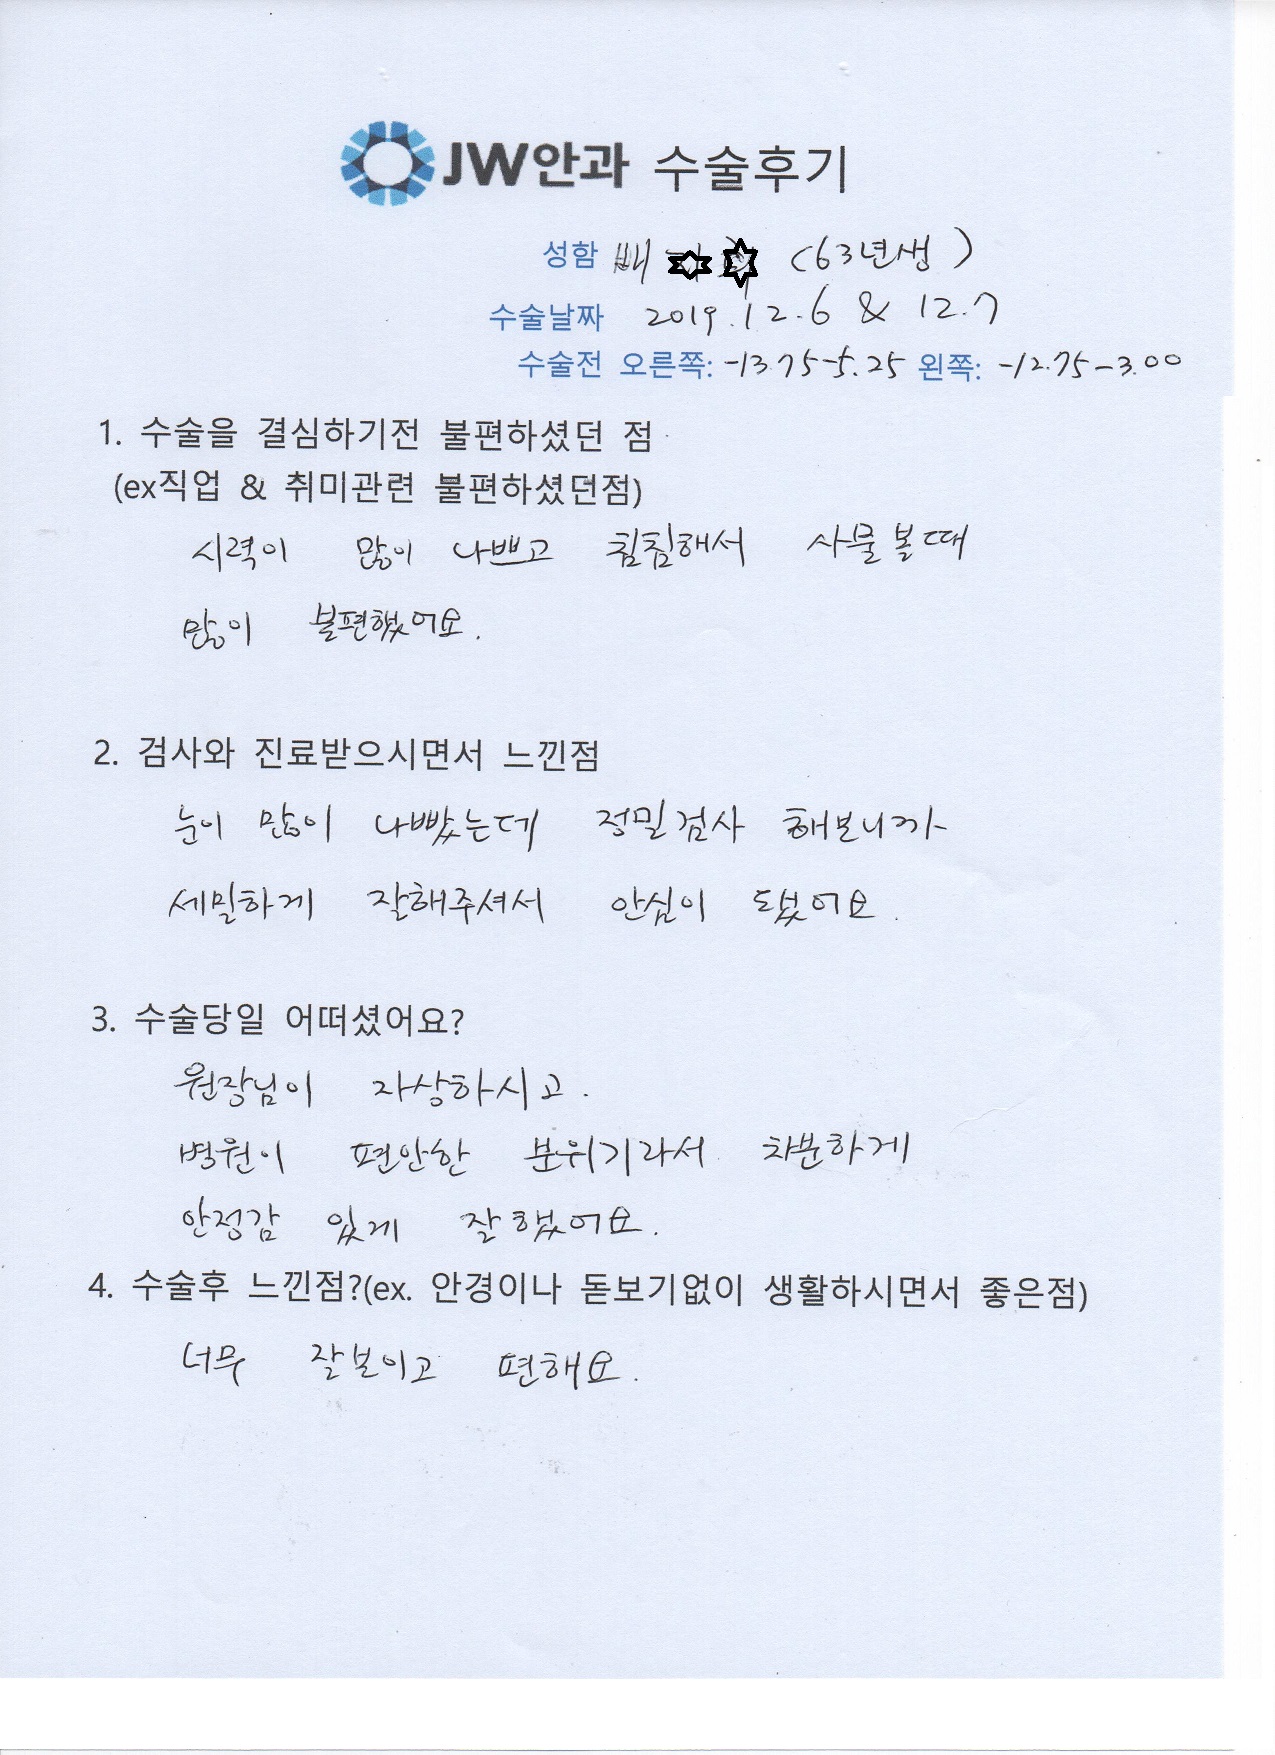 JW안과 수술후기
성함 배 (63년생)
수술날짜 2019.12.6 & 12.7
수술전 오른쪽: -13.75-5.25 왼쪽: -12.75-3.00
1. 수술을 결심하기전 불편하셨던 점
(ex직업 & 취미관련 불편하셨던점)
시력이 많이 나쁘고 침침해서 사물볼때
많이 불편했어요.
2. 검사와 진료받으시면서 느낀점
눈이 많이 나빴는데 정밀검사 해보니까
세밀하게 잘해주셔서 안심이 됐어요.
3. 수술당일 어떠셨어요?
원장님이 자상하시고.
병원이 편안한 분위기라서 차분하게
안정감 있게 잘했어요.
4. 수술후 느낀점?(ex. 안경이나 돋보기없이 생활하시면서 좋은점)
너무 잘보이고 편해요.